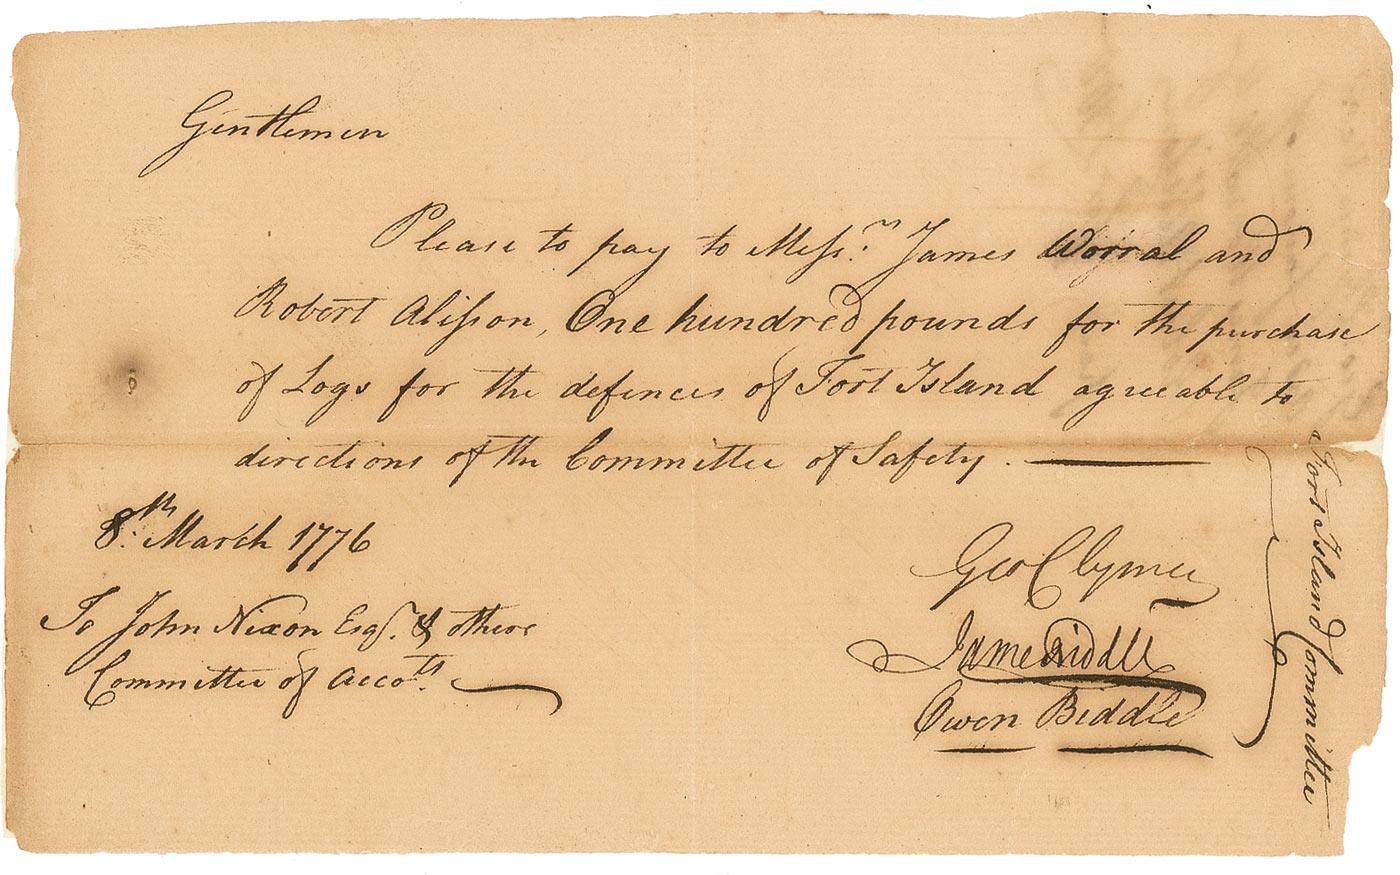 Gentlemen
Please to pay to Mess.rs James Worral and
Robert Alisson, One hundred pounds for the purchase
of Logs for the defences of Fort Island agreeable to
directions of the Committee of Safety.
8.th March 1776
To John Nixon Esqr. & others
Committee of Accots.
Geo Clymer
James Biddle
Owen Biddle
Fort Island Committee